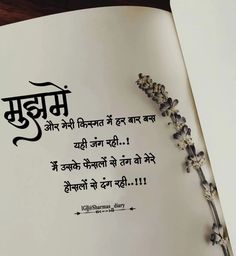 मुझमें
और मेरी किस्मत में हर बार बस
यही जंग रही..!
मैं उसके फैसलों से तंग वो मेरे
हौसलों से दंग रही..!!!